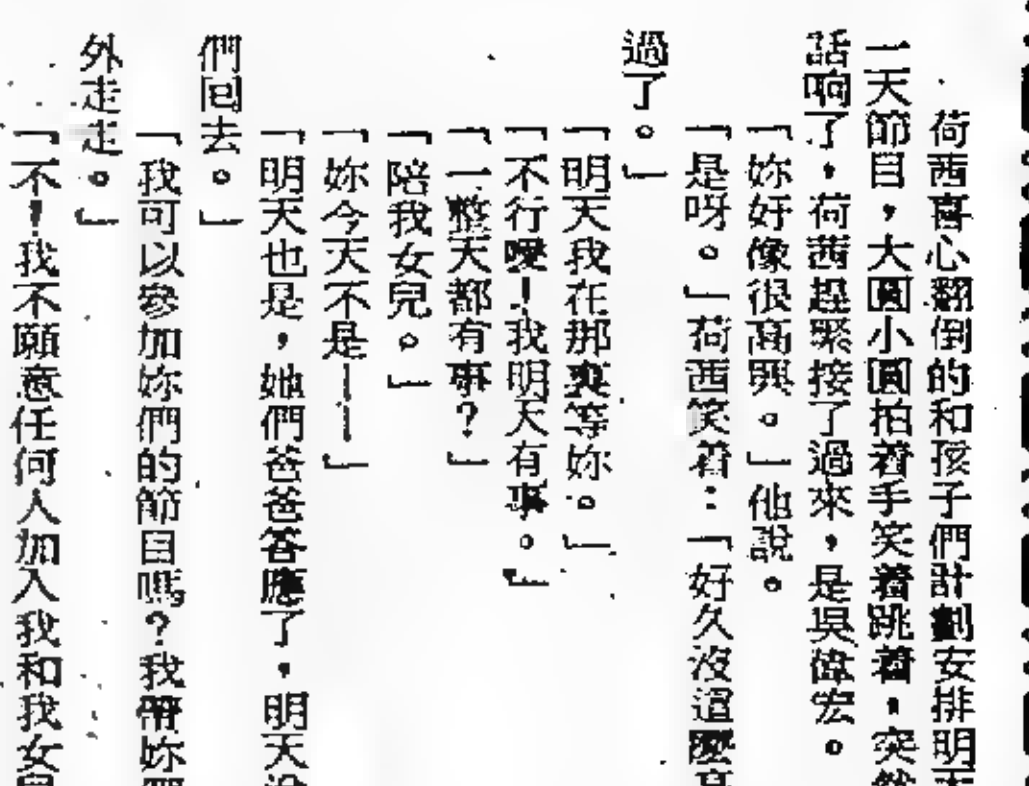 荷茜喜心翻倒的和孩子們計劃安排明天
一天節目，大圓小圓拍着手笑着跳着，突然
話响了，荷茜趕緊接了過來，是吳偉宏。
「妳好像很高興。」他說。
「是呀。」荷茜笑着：「好久沒這麼高
過了。」
「明天我在那裏等妳。」
「不行噯！我明天有事。」
「一整天都有事？」
「陪我女兒。」
「妳今天不是——」
「明天也是，她們爸爸答應了，明天沒
們回去。」
「我可以參加妳們的節目嗎？我帶妳們
外走走。」
「不！我不願意任何人加入我和我女兒